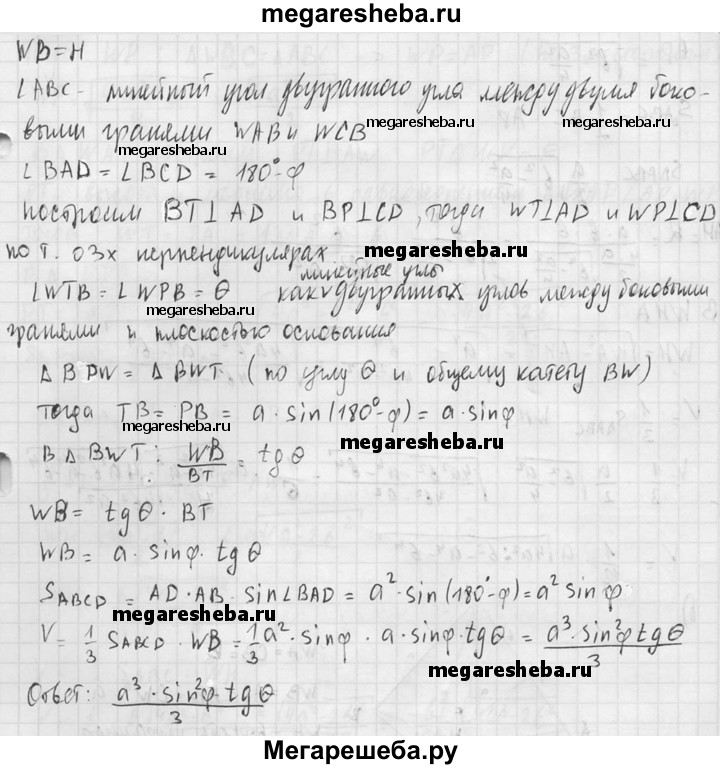 megaresheba.ru
WB=H
∠ABC- линейный угол двугранного угла между двумя боко-
megaresheba.ru
выми гранями WAB и WCB
megaresheba.ru
megaresheba.ru
∠BAD = ∠BCD = 180°-φ
megaresheba.ru
построим BT⊥AD и BP⊥CD, тогда WT⊥AD и WP⊥CD
по т. о 3х перпендикулярах
megaresheba.ru
линейные углы
∠WTB = ∠WPB = θ как двугранных углов между боковыми
megaresheba.ru
гранями и плоскостью основания
△BPW = △BWT (по углу θ и общему катету BW)
тогда TB = PB = a · sin(180°-φ) = a · sinφ
megaresheba.ru
megaresheba.ru
В △BWT: WB/BT = tgθ
WB = tgθ · BT
WB = a · sinφ · tgθ
SABCD = AD · AB · sin∠BAD = a² · sin(180°-φ) = a² sinφ
megaresheba.ru
V = 1/3 SABCD · WB = 1/3 a² · sinφ · a · sinφ · tgθ = a³ · sin²φ tgθ/3
megaresheba.ru
Ответ: a³ · sin²φ · tgθ/3
Мегарешеба.ру